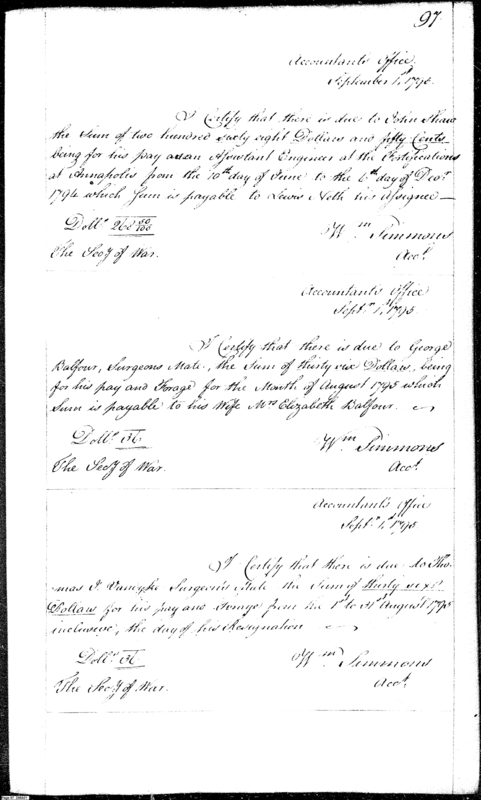 97
Accountant's Office
September 1st, 1795.
I Certify that there is due to John Shaw
the Sum of two hundred sixty eight Dollars and fifty Cents
being for his pay as an Assistant Engineer at the Fortifications
at Annapolis from the 10th day of June to the 6th day of Decr.
1794 which Sum is payable to Lewis Neth his Assignee —
Dolls. 268 50/100
Wm Simmons
The Secy of War.
Acct.
Accountants Office
Septr. 1st, 1795.
I Certify that there is due to George
Balfour, Surgeons Mate, the Sum of thirty six Dollars, being
for his pay and Forage for the Month of August 1795 which
Sum is payable to his Wife Mrs Elizabeth Balfour.
Dolls. 36
Wm Simmons
The Secy of War.
Acct.
Accountants Office
Septr. 1st, 1795
I Certify that there is due to Tho-
mas J. Vandyke Surgeon's Mate the Sum of thirty six
Dollars for his pay and Forage from the 1st to 31st August 1795
inclusive, the day of his Resignation
Dolls. 36
Wm Simmons
The Secy of War.
Acct.